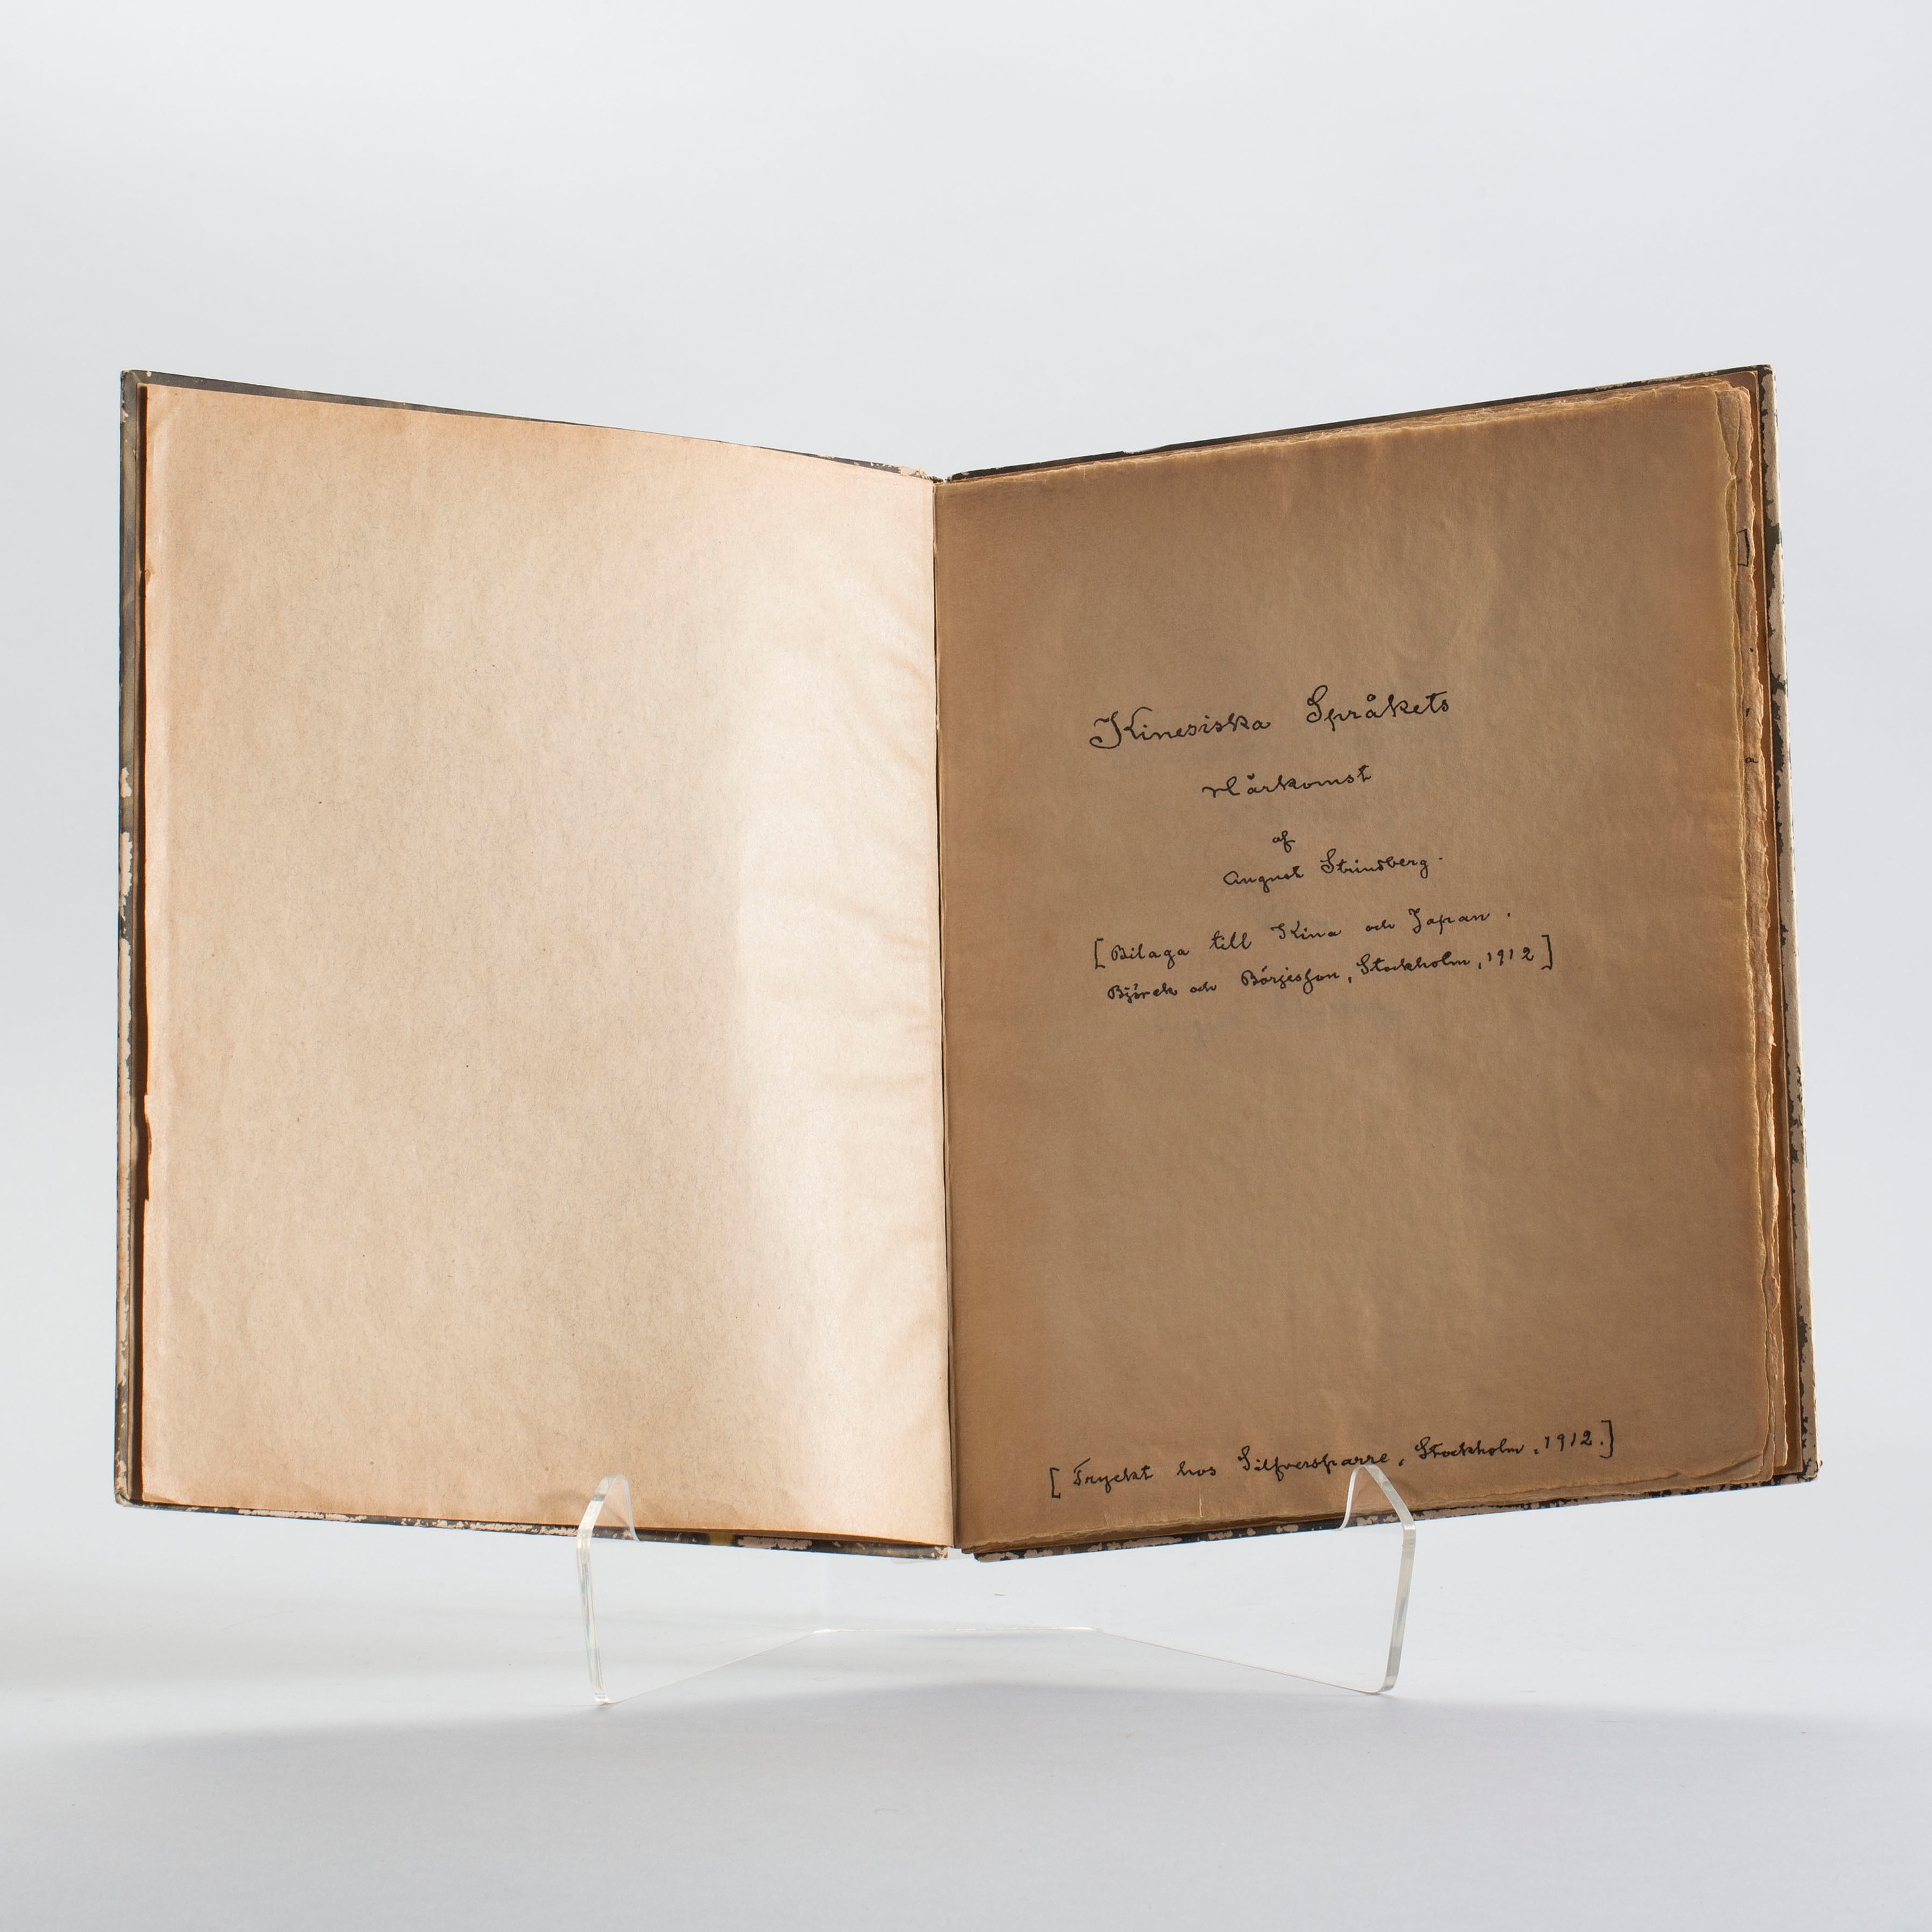 Kinesiska Språkets
Härkomst
af
August Strindberg.
[Bilaga till Kina och Japan.
Björck och Börjesson, Stockholm, 1912]
[Tryckt hos Silfversparre, Stockholm, 1912.]